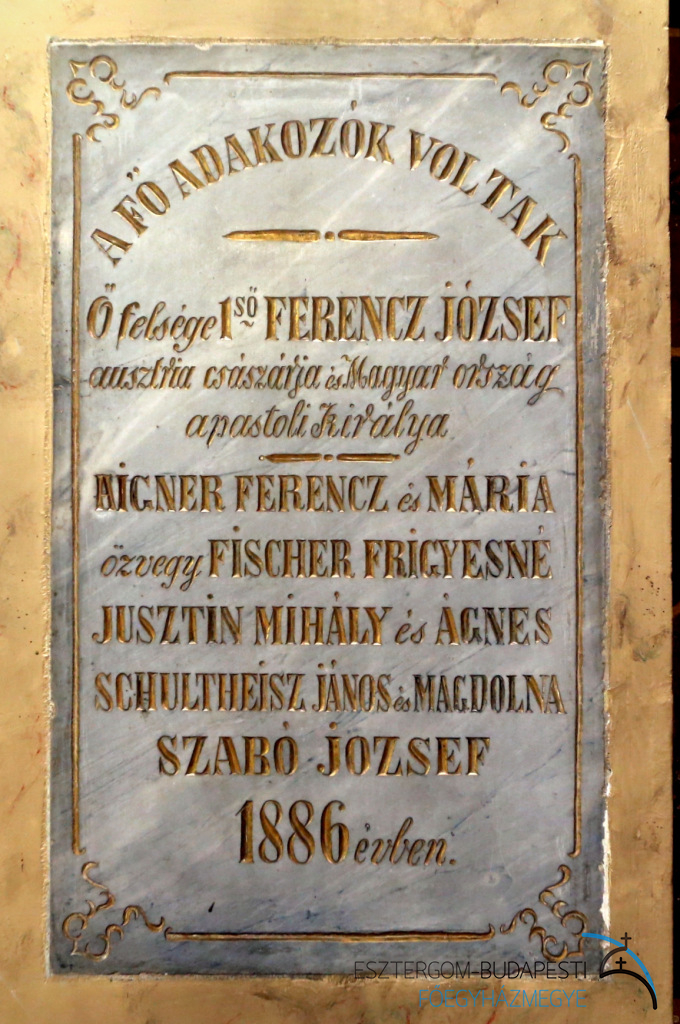 A FŐ ADAKOZÓK VOLTAK
Ő felsége 1ső FERENCZ JÓZSEF
ausztria császárja és Magyar ország
apastoli Királya
AIGNER FERENCZ és MÁRIA
özvegy FISCHER FRIGYESNÉ
JUSZTIN MIHÁLY és ÁGNES
SCHULTHEISZ JÁNOS és MAGDOLNA
SZABÓ JÓZSEF
1886 évben.
ESZTERGOM-BUDAPESTI
FŐEGYHÁZMEGYE